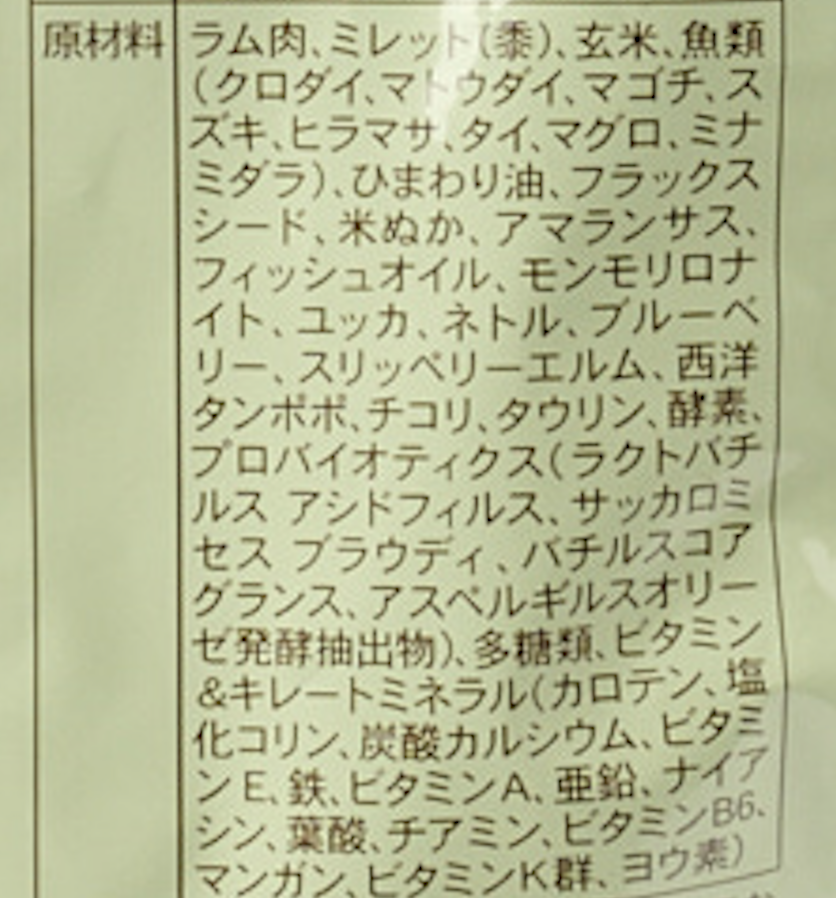 原材料
ラム肉、ミレット(黍)、玄米、魚類
(クロダイ、マトウダイ、マゴチ、ス
ズキ、ヒラマサ、タイ、マグロ、ミナ
ミダラ)、ひまわり油、フラックス
シード、米ぬか、アマランサス、
フィッシュオイル、モンモリロナ
イト、ユッカ、ネトル、ブルーベ
リー、スリッペリーエルム、西洋
タンポポ、チコリ、タウリン、酵素、
プロバイオティクス(ラクトバチ
ルス アシドフィルス、サッカロミ
セス ブラウディ、バチルスコア
グランス、アスペルギルスオリー
ゼ発酵抽出物)、多糖類、ビタミン
&キレートミネラル(カロテン、塩
化コリン、炭酸カルシウム、ビタミ
ンE、鉄、ビタミンA、亜鉛、ナイア
シン、葉酸、チアミン、ビタミンB6、
マンガン、ビタミンK群、ヨウ素)